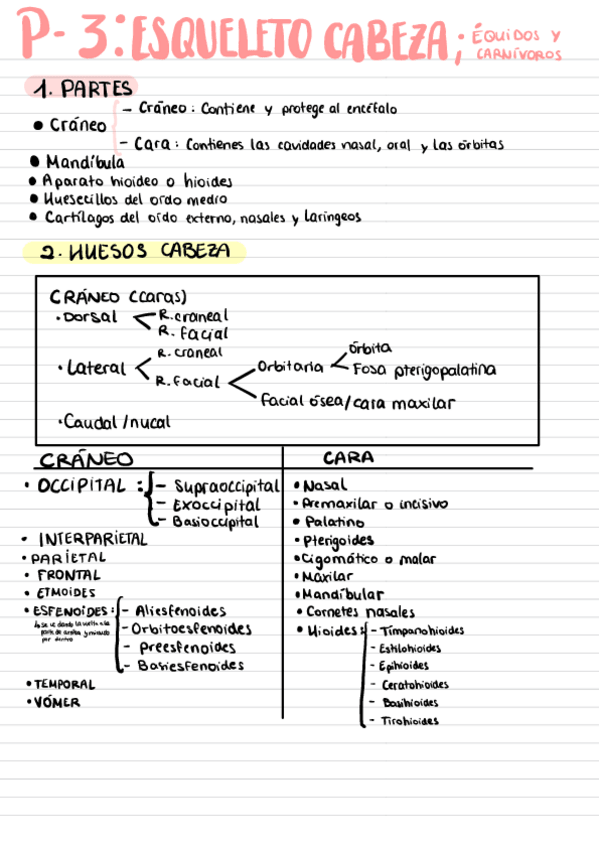 P-3: ESQUELETO CABEZA; ÉQUIDOS Y CARNÍVOROS
1. PARTES
• Cráneo
- Cráneo: Contiene y protege al encéfalo
- Cara: Contienes las cavidades nasal, oral y las órbitas
• Mandíbula
• Aparato hioideo o hioides
• Huesecillos del oído medio
• Cartílagos del oído externo, nasales y laríngeos
2. HUESOS CABEZA
CRÁNEO (caras)
• Dorsal
R. craneal
R. facial
• Lateral
R. craneal
R. facial
Orbitaria
órbita
Fosa pterigopalatina
Facial ósea/cara maxilar
• Caudal/nucal
CRÁNEO
• OCCIPITAL:
- Supraoccipital
- Exoccipital
- Basioccipital
• INTERPARIETAL
• PARIETAL
• FRONTAL
• ETMOIDES
• ESFENOIDES:
- Aliesfenoides
- Orbitoesfenoides
- Preesfenoides
- Basiesfenoides
↳ se ve dando la vuelta a la
parte de arriba y mirando
por dentro
• TEMPORAL
• VÓMER
CARA
• Nasal
• Premaxilar o incisivo
• Palatino
• Pterigoides
• Cigomático o malar
• Maxilar
• Mandibular
• Cornetes nasales
• Hioides:
- Timpanohioides
- Estilohioides
- Epihioides
- Ceratohioides
- Basihioides
- Tirohioides